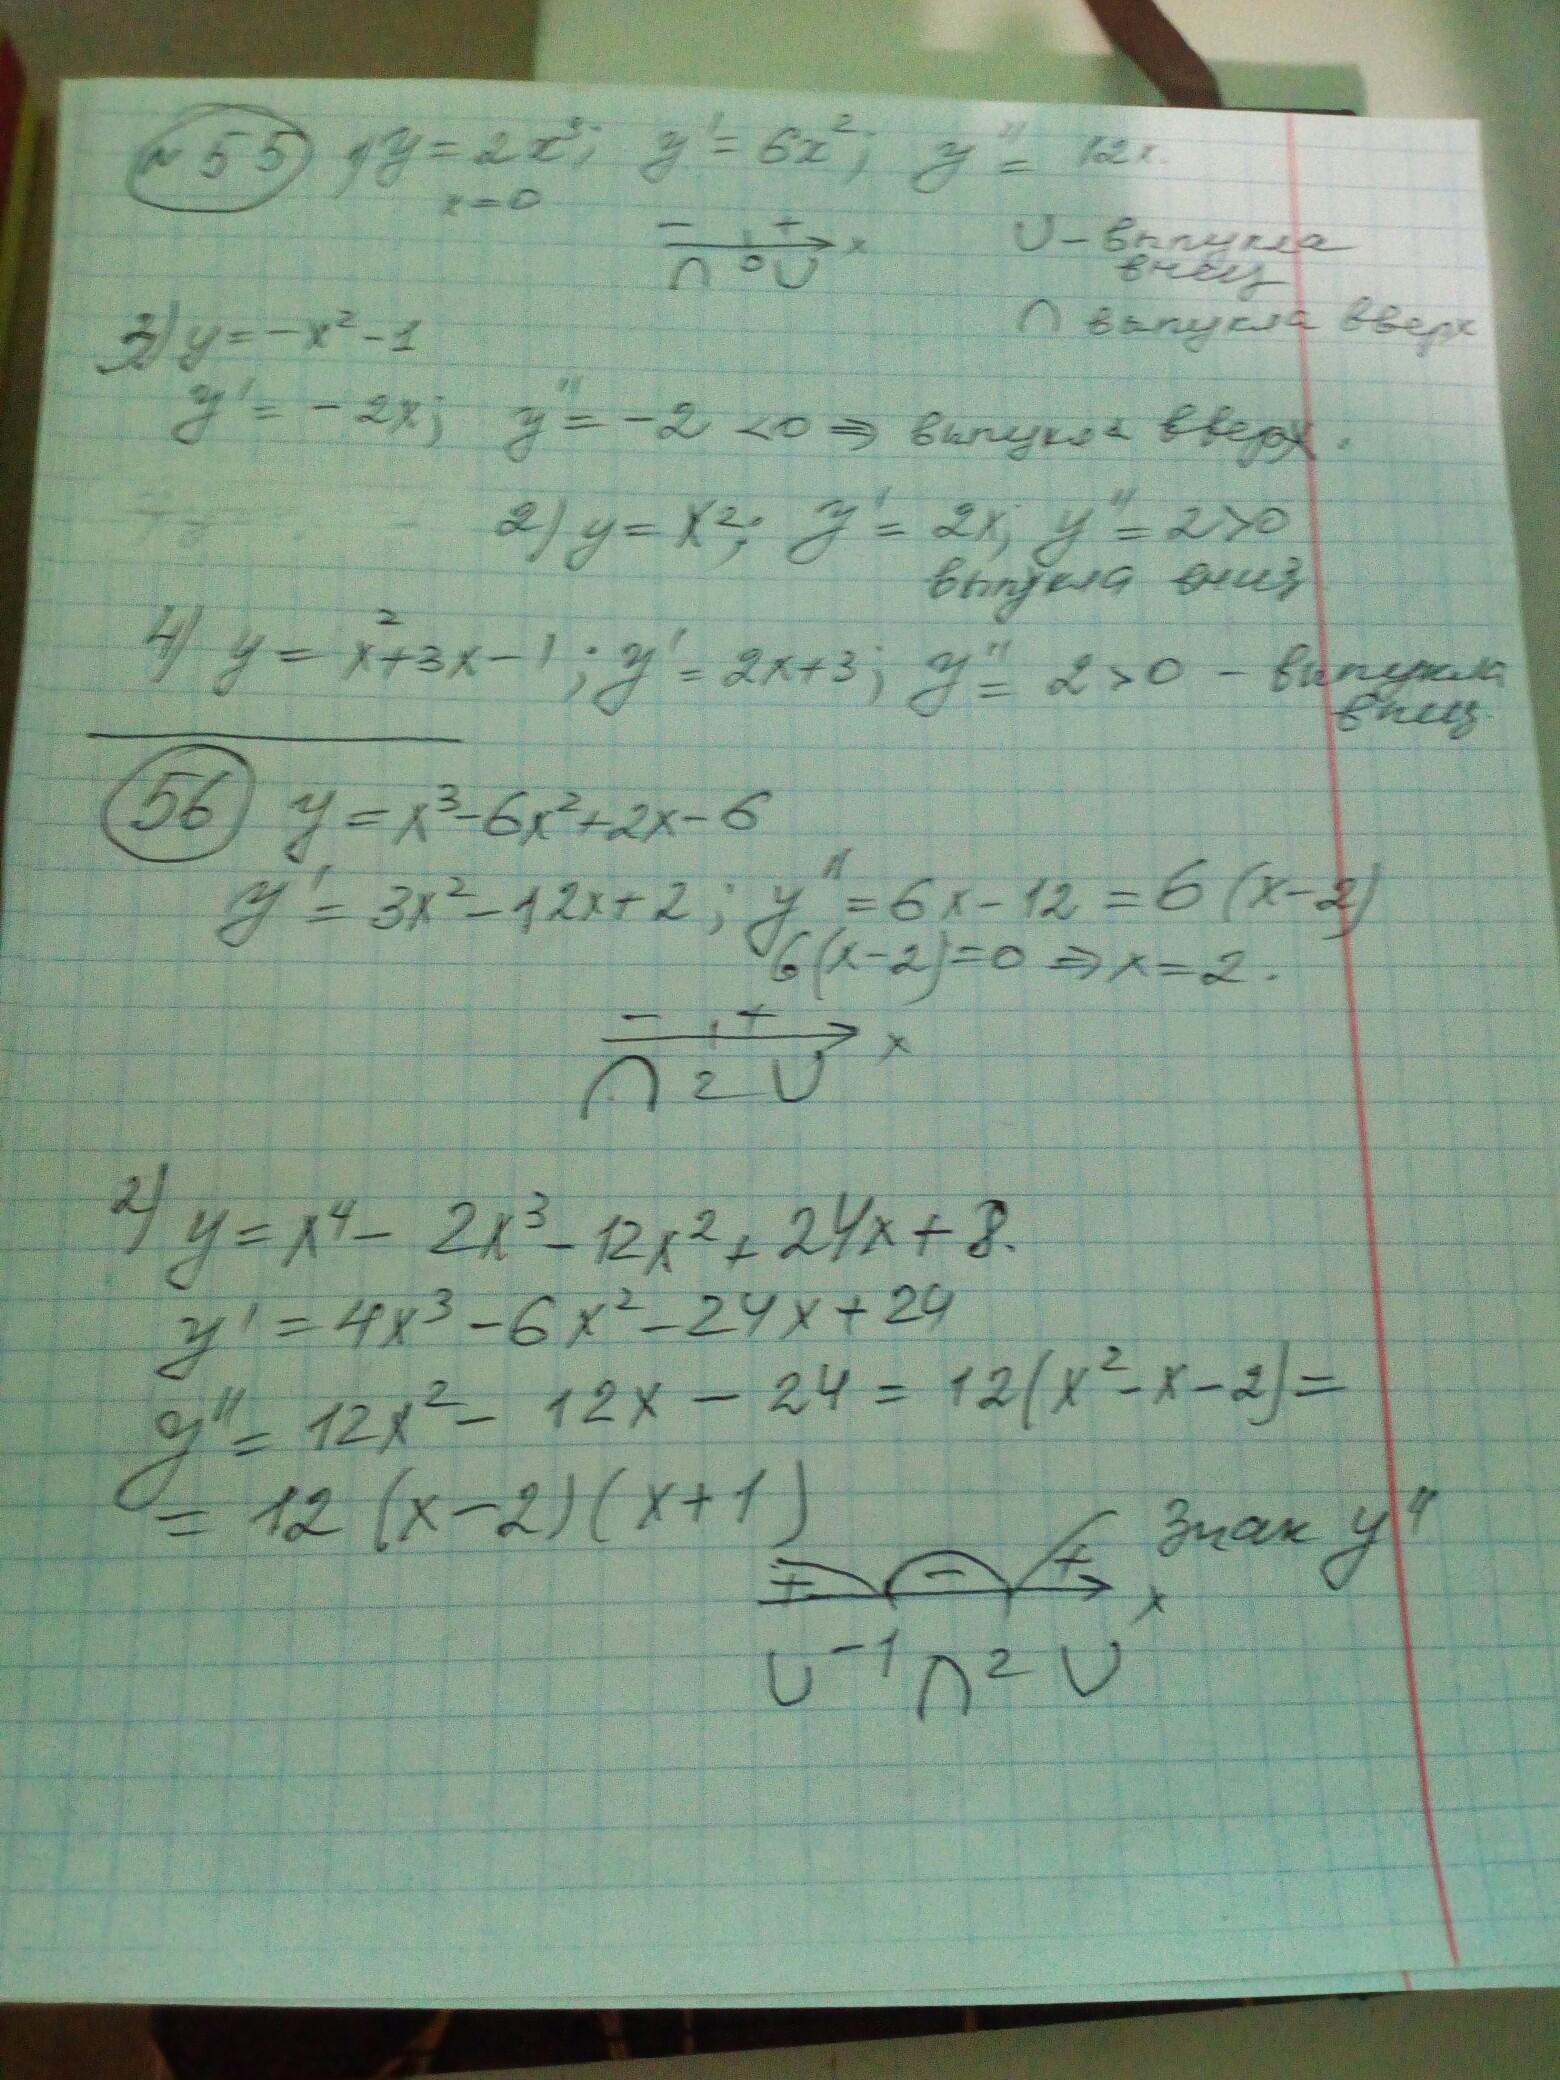 №55 1) y = 2x³; y' = 6x²; y'' = 12x.
x = 0
- + x
∩ 0 ∪
∪ – выпукла
вниз
∩ выпукла вверх
3) y = -x² - 1
y' = -2x; y'' = -2 < 0 ⇒ выпукла вверх.
2) y = x²; y' = 2x; y'' = 2 > 0
выпукла вниз
4) y = x² + 3x - 1; y' = 2x + 3; y'' = 2 > 0 – выпукла
вниз
56 y = x³ - 6x² + 2x - 6
y' = 3x² - 12x + 2; y'' = 6x - 12 = 6(x - 2)
6(x - 2) = 0 ⇒ x = 2.
- + x
∩ 2 ∪
2) y = x⁴ - 2x³ - 12x² + 24x + 8.
y' = 4x³ - 6x² - 24x + 24
y'' = 12x² - 12x - 24 = 12(x² - x - 2) =
= 12 (x - 2)(x + 1)
+ - + x Знак y''
∪ -1 ∩ 2 ∪